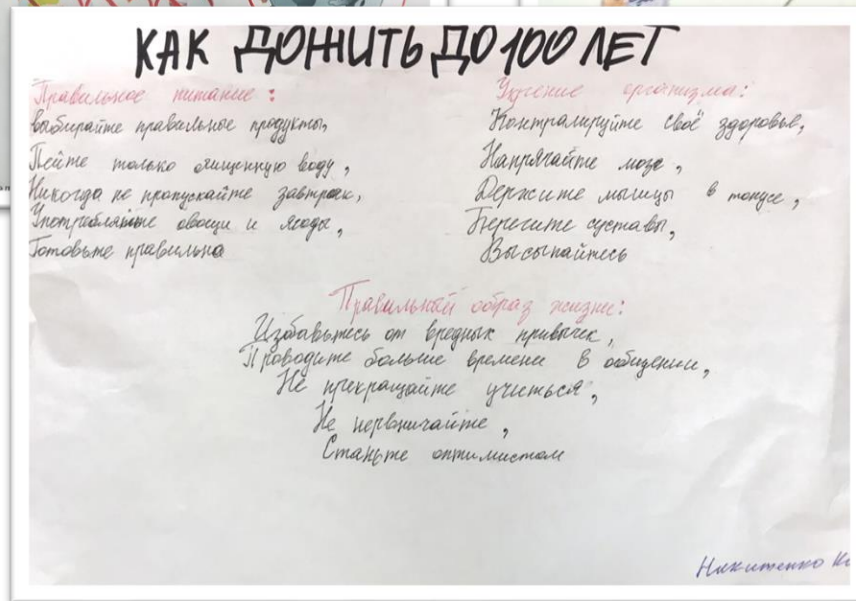 КАК ДОЖИТЬ ДО 100 ЛЕТ
Правильное питание:
выбирайте правильные продукты,
Пейте только очищенную воду,
Никогда не пропускайте завтрак,
Употребляйте овощи и ягоды,
Готовьте правильно
организма:
Контралируйте своё здоровье,
Напрягайте мозг,
Держите мышцы в тонусе,
Берегите суставы,
Высыпайтесь
Правильный образ жизни:
Избавьтесь от вредных привычек,
Проводите больше времени в общении,
Не прекращайте учиться,
Не нервничайте,
Станьте оптимистом
Никитенко